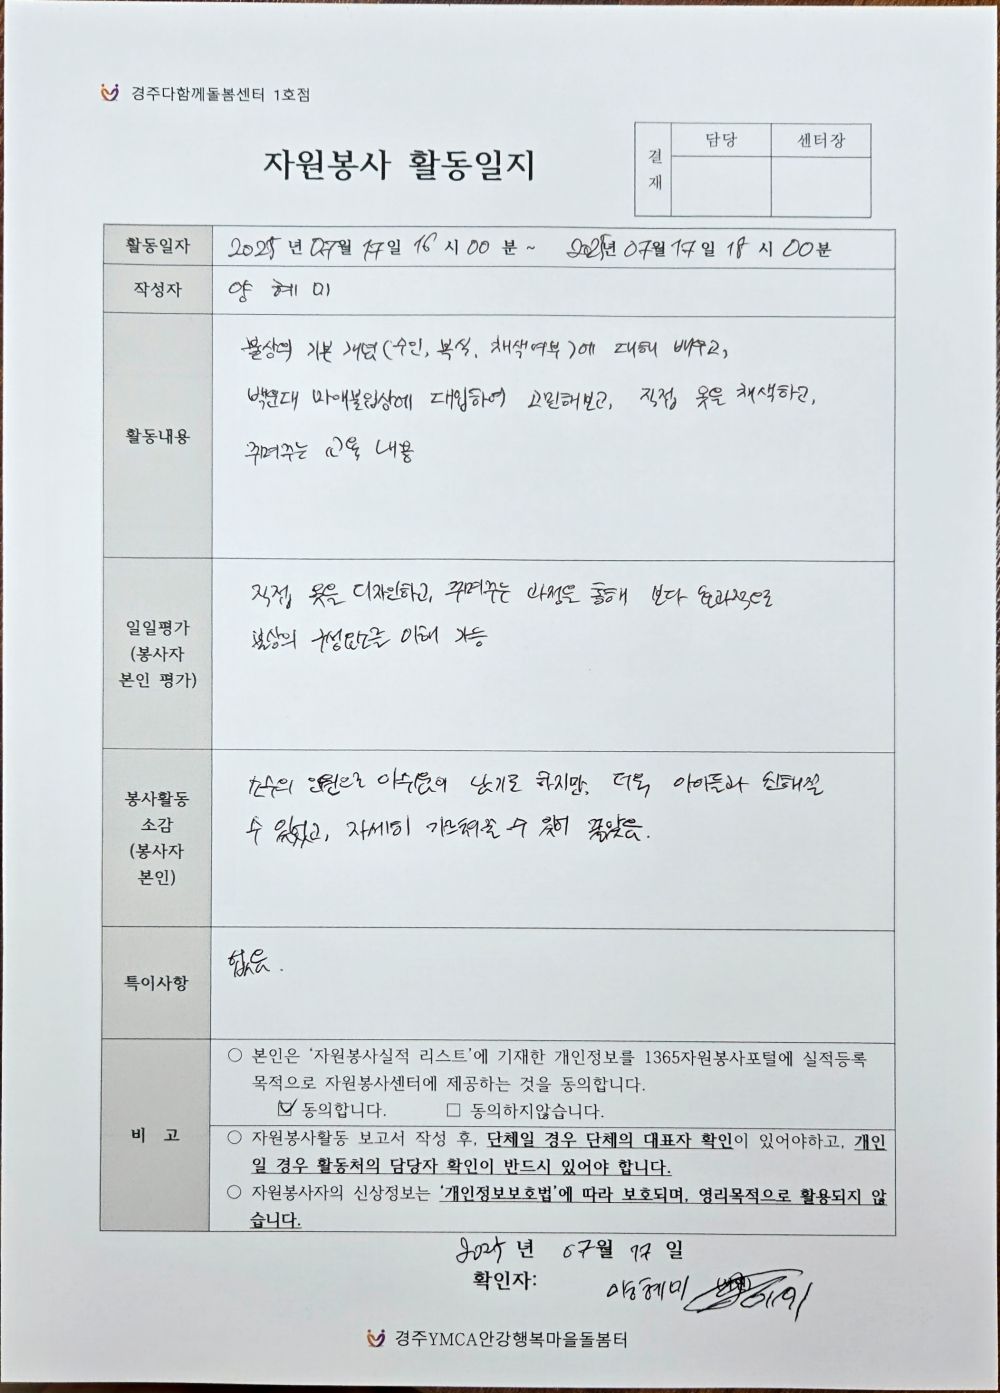 경주다함께돌봄센터 1호점
자원봉사 활동일지
결재 담당 센터장
활동일자 2025년 07월 17일 16시 00분 ~ 2025년 07월 17일 18시 00분
작성자 양혜미
불상의 기본 개념(수인, 복식, 채색여부)에 대해 배우고,
백운대 마애불입상에 대입하여 고민해보고, 직접 옷을 채색하고,
활동내용
꾸며주는 교육 내용
직접 옷을 디자인하고, 꾸며주는 과정을 통해 보다 효과적으로
일일평가
(봉사자
본인 평가)
불상의 구성요소를 이해 가능
소수의 인원으로 아쉬움이 남기도 하지만, 더욱 아이들과 친해질
봉사활동
소감
(봉사자
본인)
수 있었고, 자세히 가르쳐줄 수 있어 좋았음.
특이사항
없음.
비 고
○ 본인은 '자원봉사실적 리스트'에 기재한 개인정보를 1365자원봉사포털에 실적등록
목적으로 자원봉사센터에 제공하는 것을 동의합니다.
☑ 동의합니다. □ 동의하지않습니다.
○ 자원봉사활동 보고서 작성 후, 단체일 경우 단체의 대표자 확인이 있어야하고, 개인
일 경우 활동처의 담당자 확인이 반드시 있어야 합니다.
○ 자원봉사자의 신상정보는 '개인정보보호법'에 따라 보호되며, 영리목적으로 활용되지 않
습니다.
2025년 07월 17일
확인자: 양혜미
경주YMCA안강행복마을돌봄터